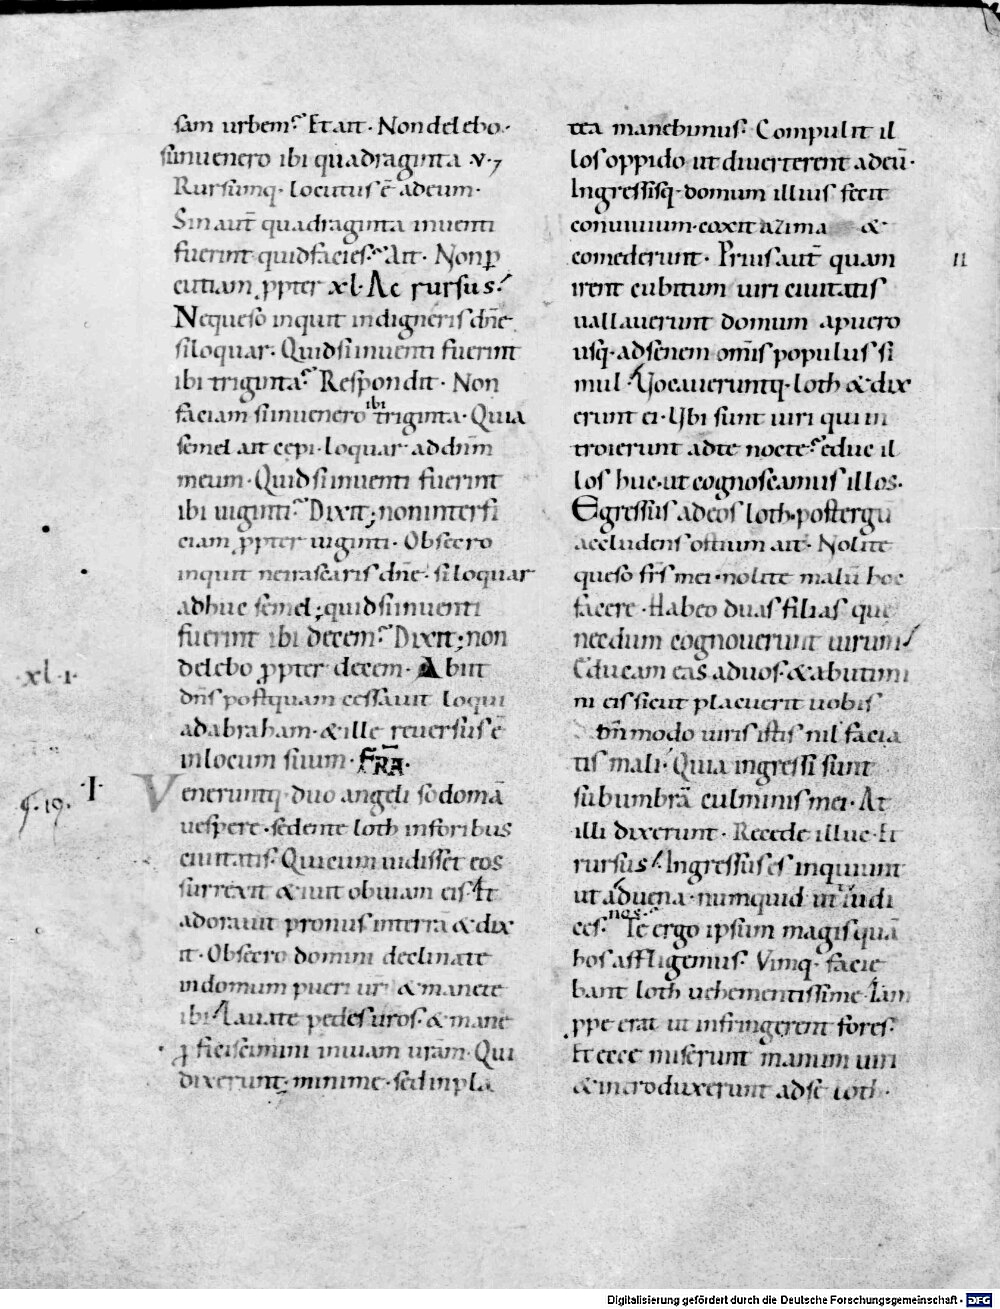 sam urbem? Et ait. Non delebo.
si inuenero ibi quadraginta .v.
Rursumq. locutus ē ad eum.
Sin aut̄ quadraginta inuenti
fuerint quid facies? Ait. Non ꝑ
cutiam ꝓpter xl. Ac rursus.
Ne queso inquit indigneris dn̄e
si loquar. Quid si inuenti fuerint
ibi triginta? Respondit. Non
faciam si inuenero ibi triginta. Quia
semel ait cepi. loquar ad dn̄m
meum. Quid si inuenti fuerint
ibi uiginti? Dixit; non interfi
ciam ꝓpter uiginti. Obsecro
inquit ne irascaris dn̄e. si loquar
adhuc semel; quid si inuenti
fuerint ibi decem? Dixit; non
delebo ꝓpter decem. Abiit
.xl.i.
dn̄s postquam cessauit loqui
ad abraham. & ille reuersus ē
in locum suum. FR̄A.
I
Veneruntq. duo angeli sodomā
c. 19.
uespere. sedente loth in foribus
ciuitatis. Qui cum uidisset eos
surrexit & iuit obuiam eis. Et
adorauit pronus in terrā & dix
it. Obsecro domini declinate
in domum pueri uri & manete
ibi. Lauate pedes uros. & mane
ꝓficiscimini in uiam urām. Qui
dixerunt. minime. sed in pla
tea manebimus. Compulit il
los oppido ut diuerterent ad eū.
Ingressisq. domum illius fecit
conuiuium. coxit azima &
comederunt. Prius aut̄ quam
II
irent cubitum uiri ciuitatis
uallauerunt domum a puero
usq. ad senem om̄is populus si
mul. Vocaueruntq. loth & dix
erunt ei. Ubi sunt uiri qui in
troierunt ad te nocte? educ il
los huc. ut cognoscamus illos.
Egressus ad eos loth. post ergū
accludens ostium ait. Nolite
queso fr̄s mei. nolite malū hoc
facere. Habeo duas filias que
necdum cognouerunt uirum.
Educam eas ad uos. & abutimi
ni eis sicut placuerit uobis
dum̄ modo uiris istis nil facia
tis mali. Quia ingressi sunt
sub umbrā culminis mei. At
illi dixerunt. Recede illuc. Et
rursus. Ingressus es inquiunt
ut aduena. numquid ut iudi
ces. Te ergo ipsum magis quā
nos.
hos affligemus. Vimq. facie
bant loth uehementissime. Iam
ꝓpe erat ut infringerent fores.
Et ecce miserunt manum uiri
& introduxerunt ad se loth.
Digitalisierung gefördert durch die Deutsche Forschungsgemeinschaft - DFG